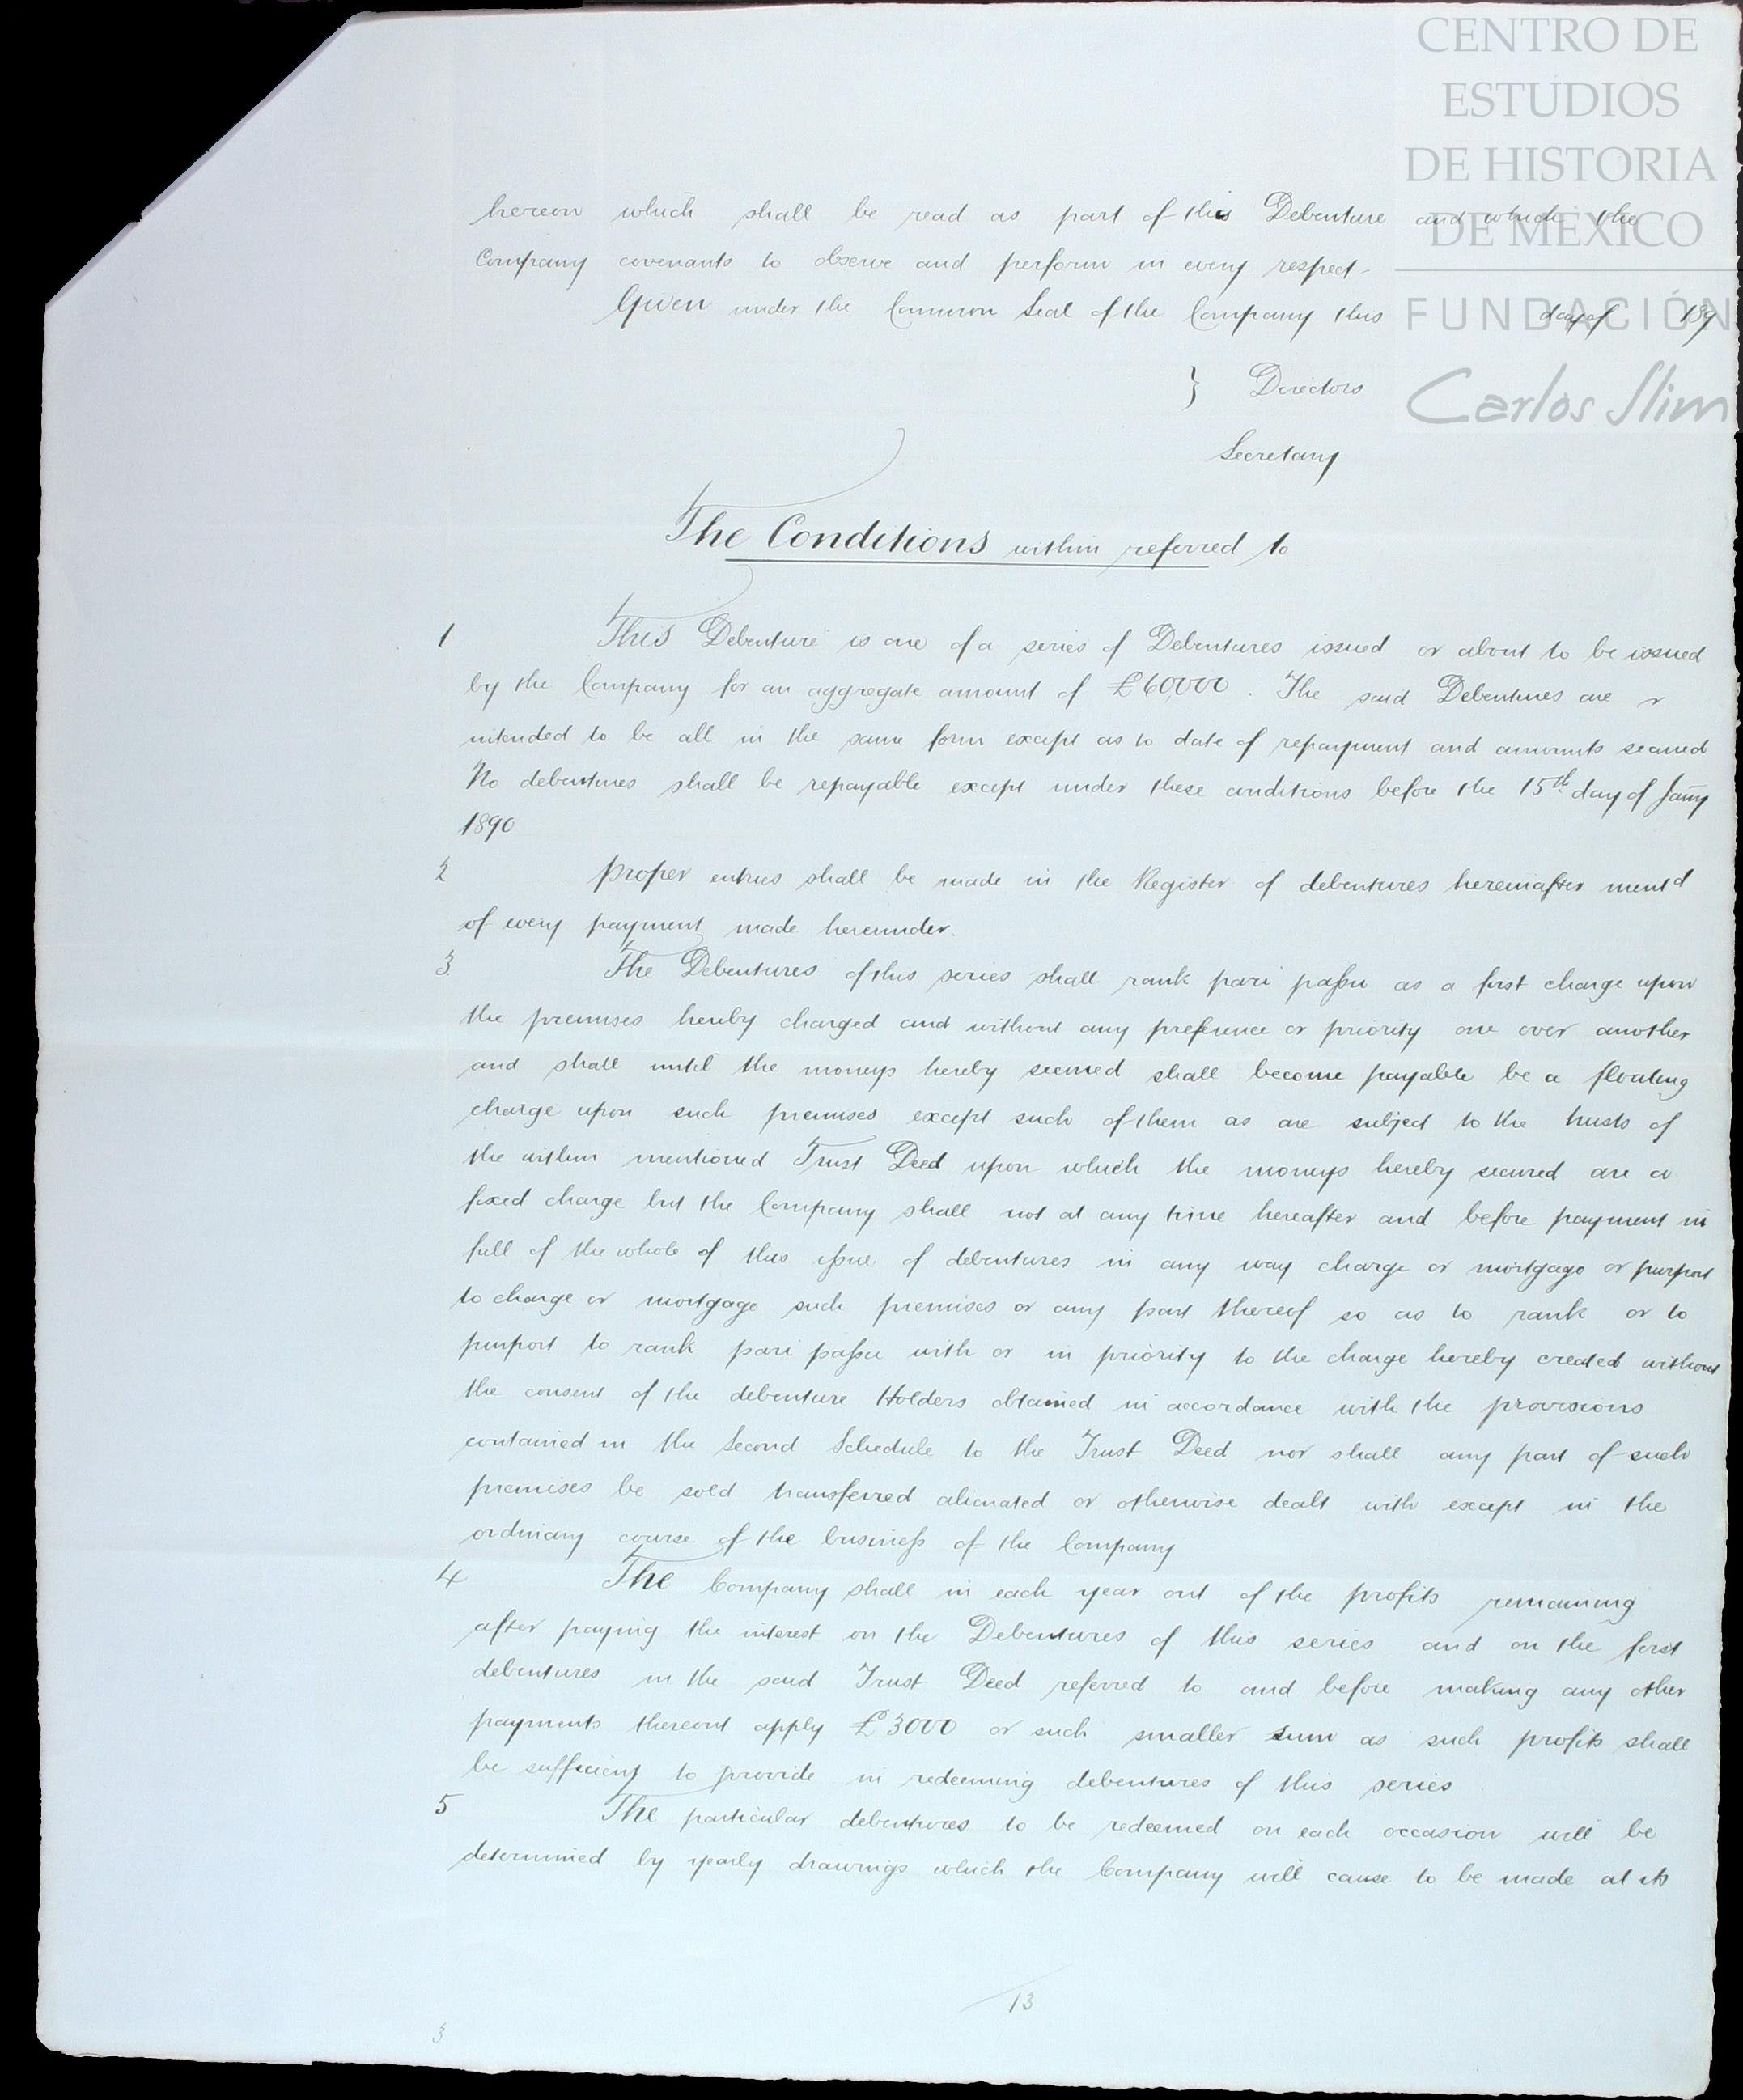 CENTRO DE
ESTUDIOS
DE HISTORIA
DE MÉXICO
FUNDACIÓN
Carlos Slim
hereon which shall be read as part of this Debenture and which the
Company covenants to observe and perform in every respect.
Given under the Common Seal of the Company this day of 189
} Directors
Secretary
The Conditions within referred to
1 This Debenture is one of a series of Debentures issued or about to be issued
by the Company for an aggregate amount of £60,000. The said Debentures are
intended to be all in the same form except as to date of repayment and amounts secured
No debentures shall be repayable except under these conditions before the 15th day of Jany
1890
2 Proper entries shall be made in the Register of debentures hereinafter mentd
of every payment made hereunder.
3 The Debentures of this series shall rank pari passu as a first charge upon
the premises hereby charged and without any preference or priority one over another
and shall until the moneys hereby secured shall become payable be a floating
charge upon such premises except such of them as are subject to the trusts of
the within mentioned Trust Deed upon which the moneys hereby secured are a
fixed charge but the Company shall not at any time hereafter and before payment in
full of the whole of this issue of debentures in any way charge or mortgage or purport
to charge or mortgage such premises or any part thereof so as to rank or to
purport to rank pari passu with or in priority to the charge hereby created without
the consent of the debenture Holders obtained in accordance with the provisions
contained in the Second Schedule to the Trust Deed nor shall any part of such
premises be sold transferred alienated or otherwise dealt with except in the
ordinary course of the business of the Company
4 The Company shall in each year out of the profits remaining
after paying the interest on the Debentures of this series and on the first
debentures in the said Trust Deed referred to and before making any other
payments thereout apply £3000 or such smaller sum as such profits shall
be sufficient to provide in redeeming debentures of this series
5 The particular debentures to be redeemed on each occasion will be
determined by yearly drawings which the Company will cause to be made at its
13
3